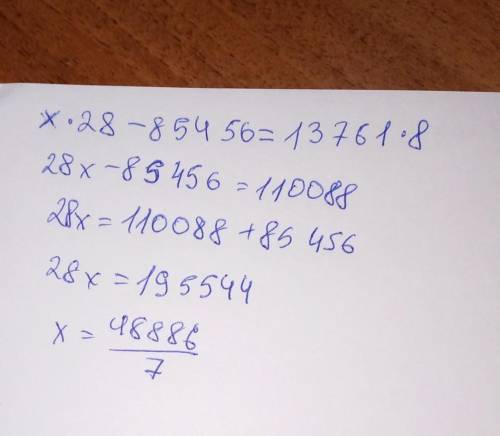 x·28-85456=13761·8
28x-85456=110088
28x=110088+85456
28x=195544
x=48886/7